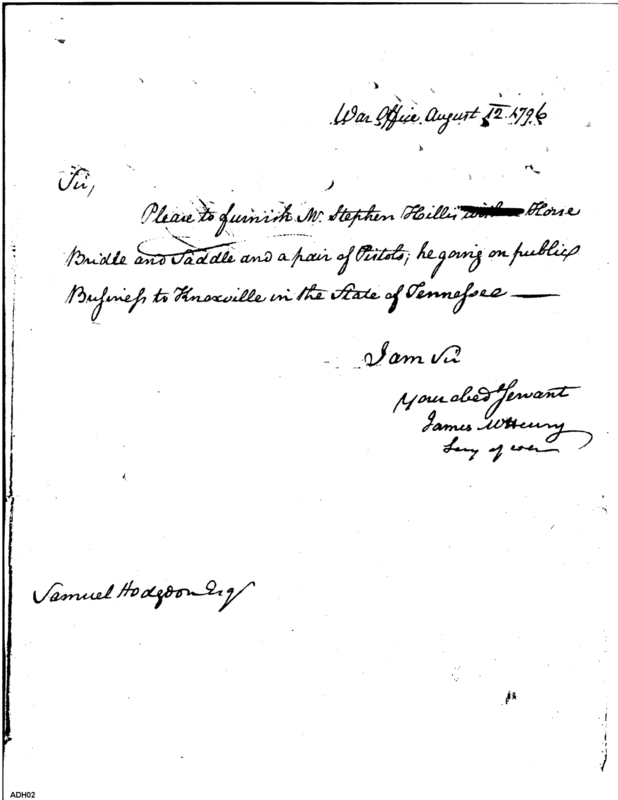 War Office August 12. 1796
Sir,
Please to furnish Mr Stephen Hillis Horse
Bridle and Saddle and a pair of Pistols, he going on public
Business to Knoxville in the State of Tennessee —
I am Sir
Your obed Servant
James McHenry
Secy of war
Samuel Hodgdon Esqr
ADH02